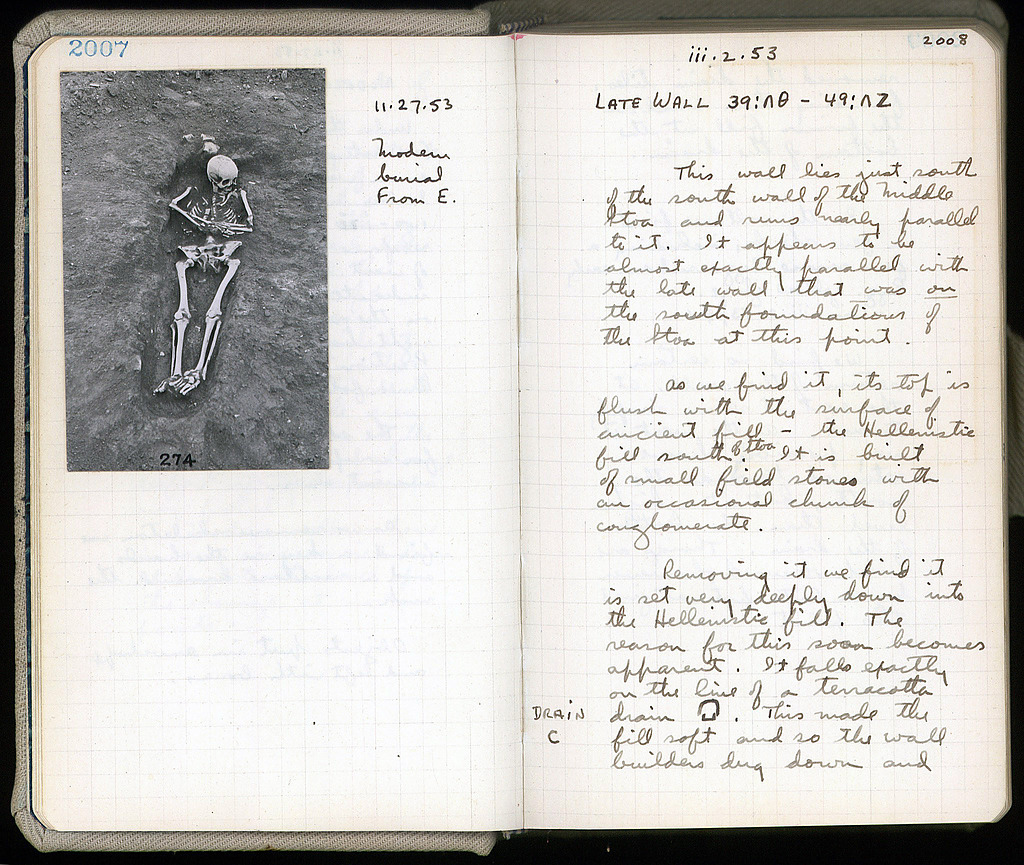 2007
11.27.53
Modern
burial
From E.
274
2008
iii.2.53
LATE WALL 39:ΛΘ - 49:ΛΖ
This wall lies just south
of the south wall of the Middle
Stoa and runs nearly parallel
to it. It appears to be
almost exactly parallel with
the late wall that was on
the south foundations of
the Stoa at this point.
As we find it, its top is
flush with the surface of
ancient fill - the Hellenistic
fill south of Stoa. It is built
of small field stones with
an occasional chunk of
conglomerate.
Removing it we find it
is set very deeply down into
the Hellenistic fill. The
reason for this soon becomes
apparent. It falls exactly
on the line of a terracotta
DRAIN drain . This made the
C fill soft and so the wall
builders dug down and